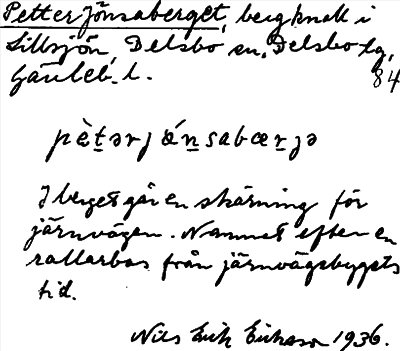 Petter Jönsaberget, bergknall i
Sillsjön, Delsbo sn, Delsbo tg,
Gävleb. l.
84
pètərjǿnsabærjə
I berget går en skärning för
järnvägen. Namnet efter en
rallarbas från järnvägsbyggets
tid.
Nils Erik Eriksson 1936.